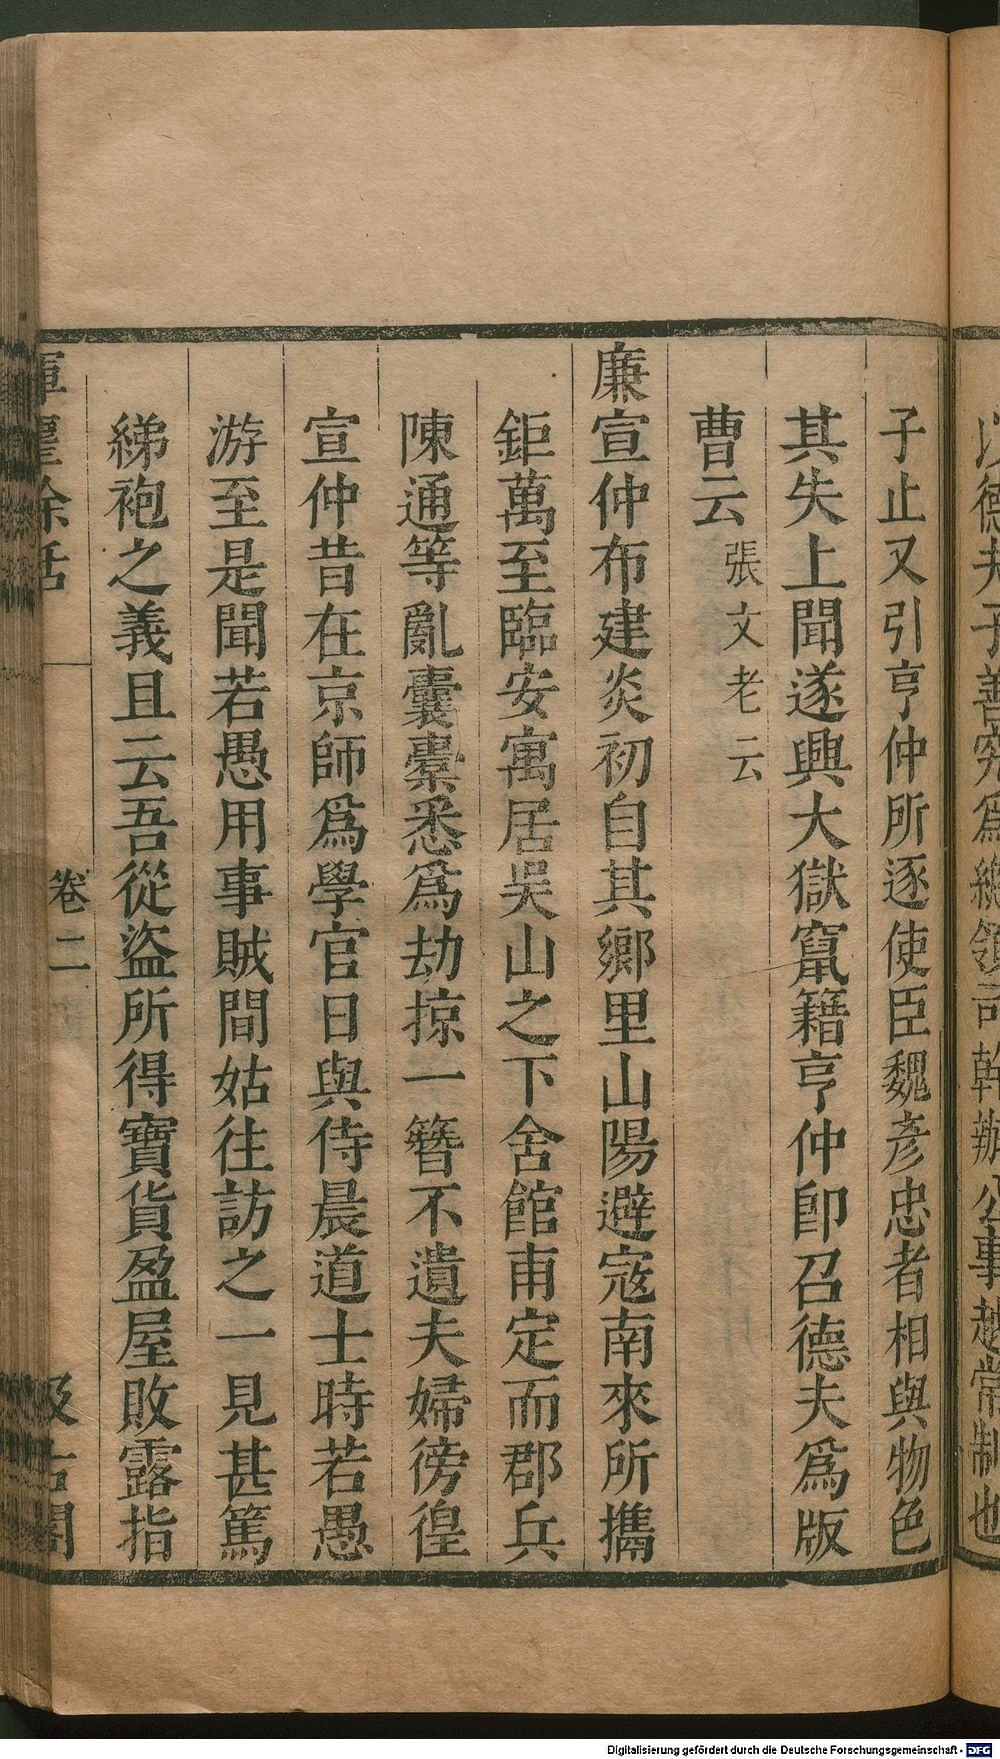 以德夫子善究爲總領司幹辦公事越常制也
子止又引亨仲所逐使臣魏彥忠者相與物色
其失上聞遂興大獄竄籍亨仲卽召德夫爲版
曹云張文老云
廉宣仲布建炎初自其鄉里山陽避寇南來所攜
鉅萬至臨安寓居吳山之下舍館甫定而郡兵
陳通等亂囊橐悉爲劫掠一簪不遺夫婦徬徨
宣仲昔在京師爲學官日與侍晨道士時若愚
游至是聞若愚用事賊間姑往訪之一見甚篤
綈袍之義且云吾從盜所得寶貨盈屋敗露指
揮麈餘話 卷二 汲古閣
Digitalisierung gefördert durch die Deutsche Forschungsgemeinschaft - DFG